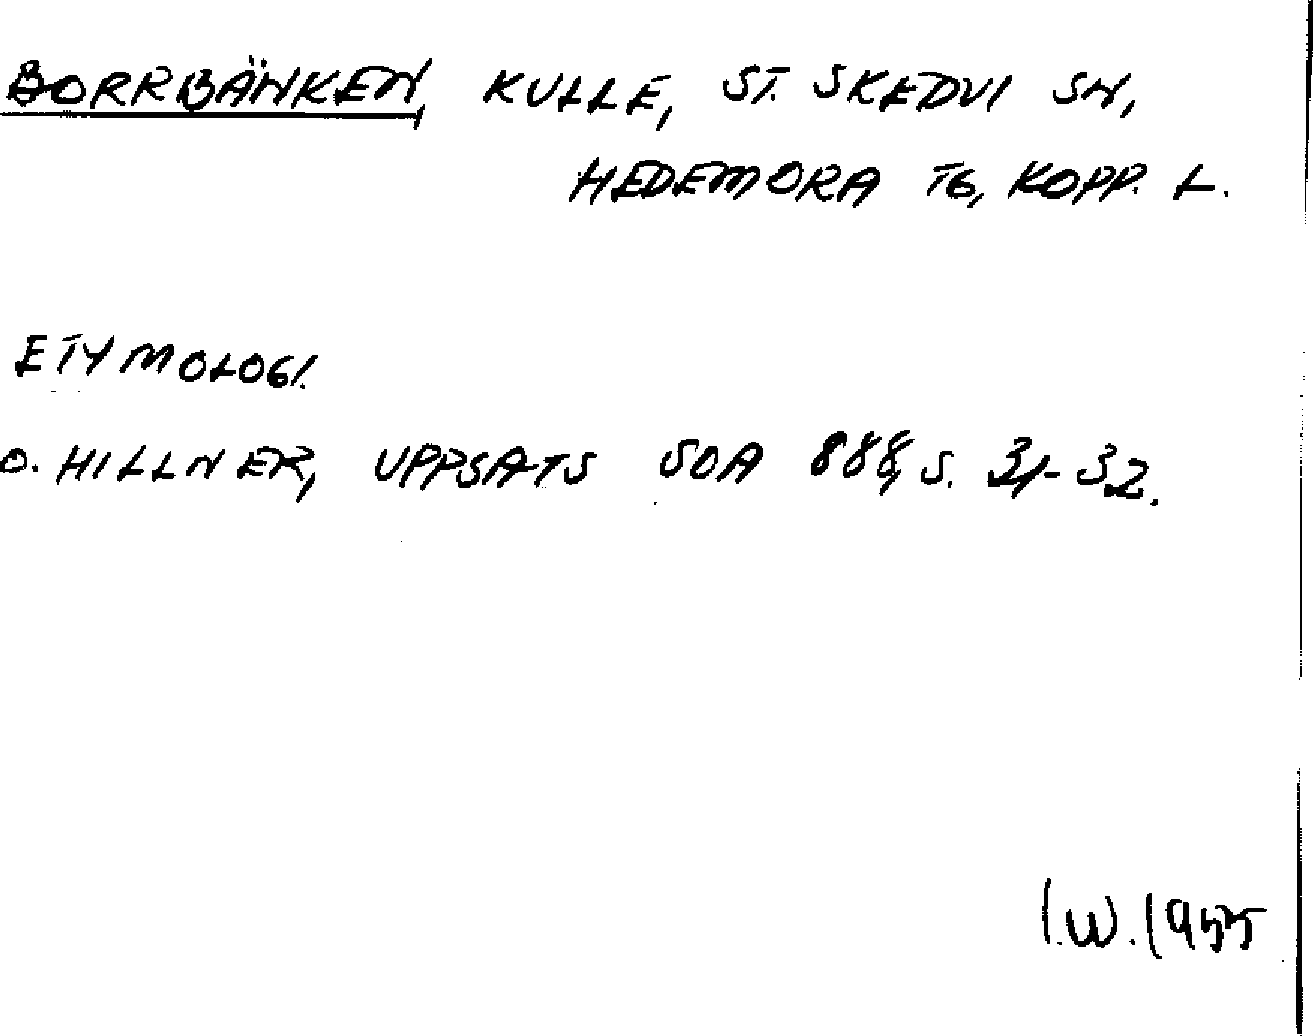 BORRBÄNKEN, KULLE, ST. SKEDVI SN,
HEDEMORA TG, KOPP. L.
ETYMOLOGI.
O. HILLNER, UPPSATS SOA 888, S. 31-32.
I.W. 1955